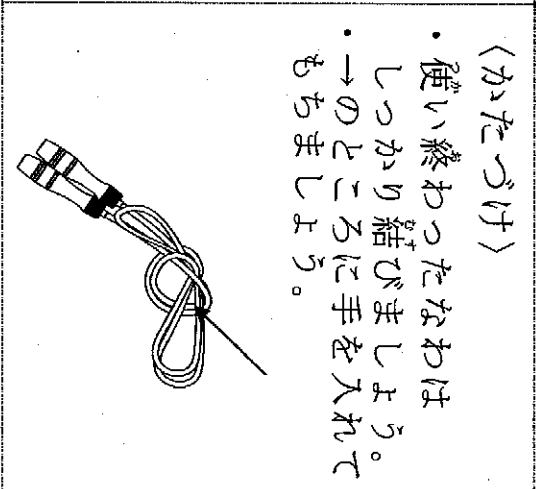 〈かたづけ〉
・使い終わったなわは
しっかり結びましょう。
・→のところに手を入れて
もちましょう。